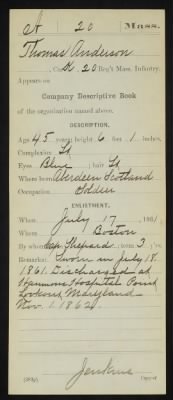 A 20 Mass.
Thomas Anderson
Co. K. 20 Reg't Mass. Infantry.
Appears on
Company Descriptive Book
of the organization named above.
DESCRIPTION.
Age 45 years; height 6 feet 1 inches.
Complexion Lt
Eyes Blue; hair Lt
Where born Aberdeen Scotland
Occupation Soldier
ENLISTMENT.
When July 17, 1861
Where Boston
By whom Cap. Shepard; term 3 y'rs.
Remarks: Sworn in July 18.
1861 Discharged at
Hammond Hospital Point
Lookout Maryland
Nov. 1. 1862.
Jenkins
Copyist